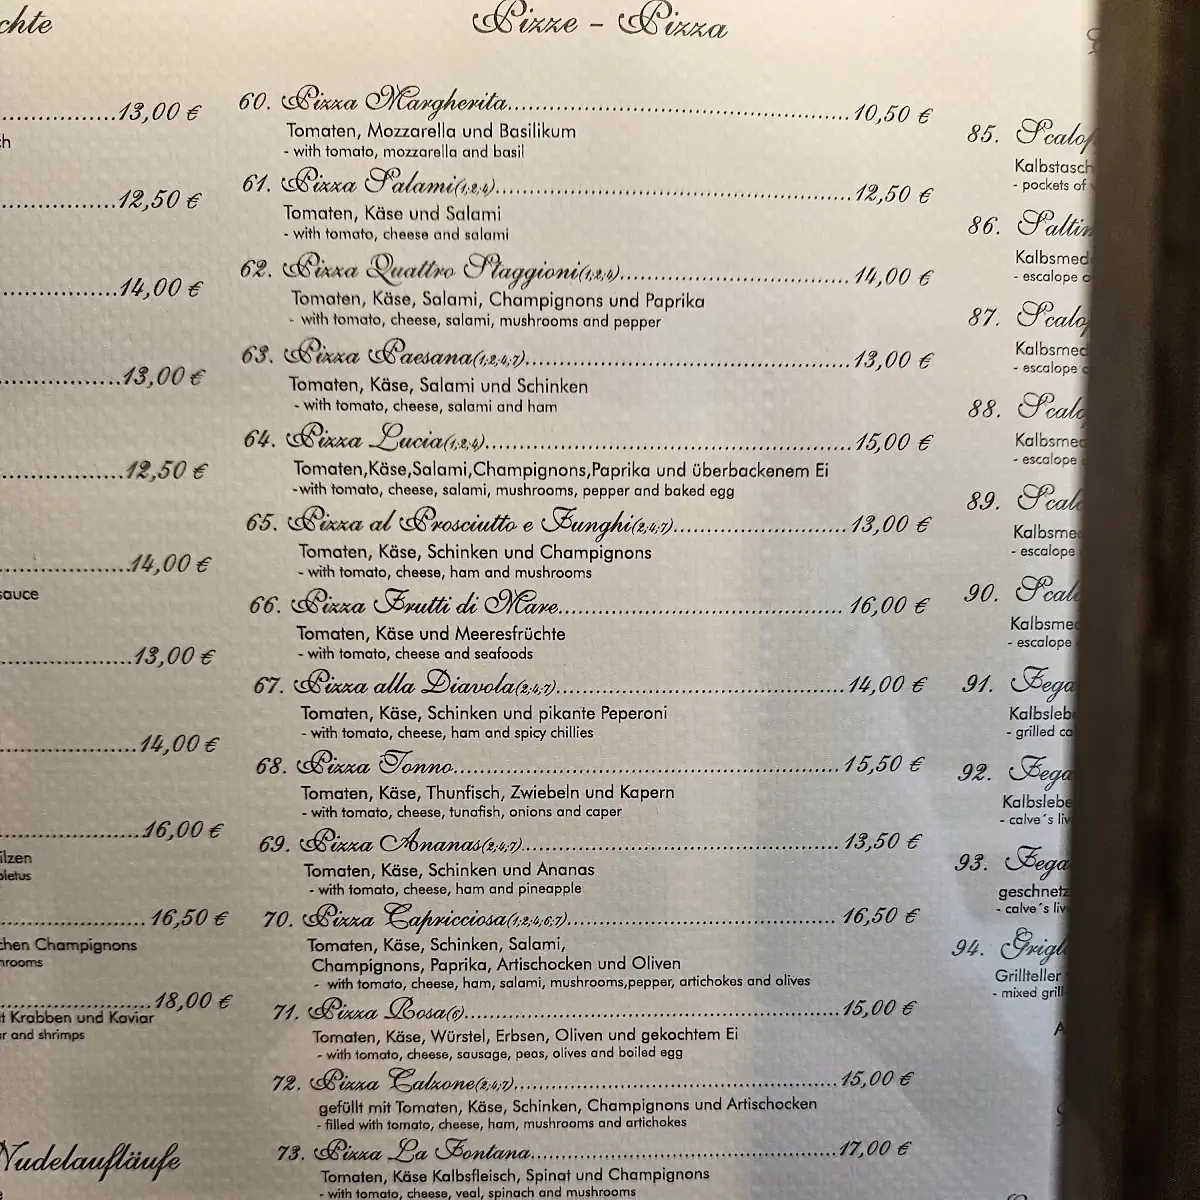 chte
13,00 €
12,50 €
14,00 €
13,00 €
12,50 €
14,00 €
sauce
13,00 €
14,00 €
16,00 €
16,50 €
chen Champignons
18,00 €
t Krabben und Kaviar
r and shrimps
Nudelaufläufe
Pizze - Pizza
60. Pizza Margherita 10,50 €
Tomaten, Mozzarella und Basilikum
- with tomato, mozzarella and basil
61. Pizza Salami(1,2,4) 12,50 €
Tomaten, Käse und Salami
- with tomato, cheese and salami
62. Pizza Quattro Staggioni(1,2,4) 14,00 €
Tomaten, Käse, Salami, Champignons und Paprika
- with tomato, cheese, salami, mushrooms and pepper
63. Pizza Paesana(1,2,4,7) 13,00 €
Tomaten, Käse, Salami und Schinken
- with tomato, cheese, salami and ham
64. Pizza Lucia(1,2,4) 15,00 €
Tomaten,Käse,Salami,Champignons,Paprika und überbackenem Ei
-with tomato, cheese, salami, mushrooms, pepper and baked egg
65. Pizza al Prosciutto e Funghi(2,4,7) 13,00 €
Tomaten, Käse, Schinken und Champignons
- with tomato, cheese, ham and mushrooms
66. Pizza Frutti di Mare 16,00 €
Tomaten, Käse und Meeresfrüchte
- with tomato, cheese and seafoods
67. Pizza alla Diavola(2,4,7) 14,00 €
Tomaten, Käse, Schinken und pikante Peperoni
- with tomato, cheese, ham and spicy chillies
68. Pizza Tonno 15,50 €
Tomaten, Käse, Thunfisch, Zwiebeln und Kapern
- with tomato, cheese, tunafish, onions and caper
69. Pizza Ananas(2,4,7) 13,50 €
Tomaten, Käse, Schinken und Ananas
- with tomato, cheese, ham and pineapple
70. Pizza Capricciosa(1,2,4,6,7) 16,50 €
Tomaten, Käse, Schinken, Salami,
Champignons, Paprika, Artischocken und Oliven
- with tomato, cheese, ham, salami, mushrooms,pepper, artichokes and olives
71. Pizza Rosa(6) 15,00 €
Tomaten, Käse, Würstel, Erbsen, Oliven und gekochtem Ei
- with tomato, cheese, sausage, peas, olives and boiled egg
72. Pizza Calzone(2,4,7) 15,00 €
gefüllt mit Tomaten, Käse, Schinken, Champignons und Artischocken
- filled with tomato, cheese, ham, mushrooms and artichokes
73. Pizza La Fontana 17,00 €
Tomaten, Käse Kalbsfleisch, Spinat und Champignons
- with tomato, cheese, veal, spinach and mushrooms
85. Scalop
Kalbstasch
- pockets of
86. Saltim
Kalbsmed
- escalope
87. Scalo
Kalbsmed
- escalope
88. Scalo
Kalbsmed
- escalope
89. Scal
Kalbsmed
- escalope
90. Scal
Kalbsmed
- escalope
91. Fega
Kalbsleb
- grilled ca
92. Fega
Kalbslebe
- calve´s liv
93. Fega
geschnetz
- calve´s liv
94. Grigl
Grillteller
- mixed grill